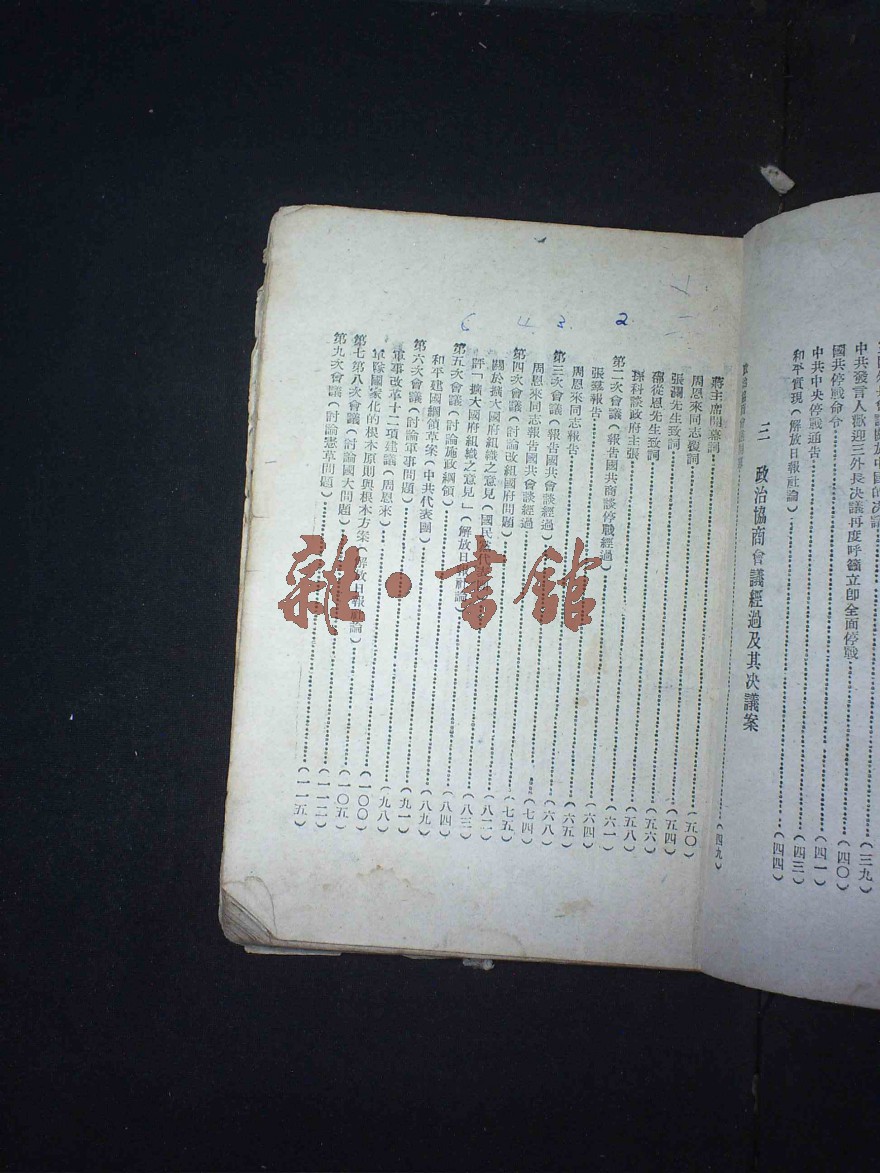 中共發言人歡迎三外長決議再度呼籲立卽全面停戰(三九)
國共停戰命令(四〇)
中共中央停戰通告(四一)
和平實現(解放日報社論)(四三)
(四四)
三 政治協商會議經過及其決議案
蔣主席開幕詞(四九)
周恩來同志覆詞(五〇)
張瀾先生致詞(五四)
邵從恩先生致詞(五六)
孫科談政府主張(五八)
第二次會議(報告國共商談停戰經過)(六一)
張羣報告(六四)
周恩來同志報告(六五)
第三次會議(報告國共會談經過)(六八)
周恩來同志報告國共會談經過(七四)
第四次會議(討論改組國府問題)(七五)
關於擴大國府組織之意見(國民(八二)
評「擴大國府組織之意見」(解放日報社論)(八三)
第五次會議(討論施政綱領)(八四)
和平建國綱領草案(中共代表團)(八九)
第六次會議(討論軍事問題)(九一)
軍事改革十二項建議(周恩來)(九八)
軍隊國家化的根本原則與根本方案(解放日報社論)(一〇〇)
第七第八次會議(討論國大問題)(一〇五)
第九次會議(討論憲草問題)(一一二)
(一一五)
2
3
4
6
雜·書館